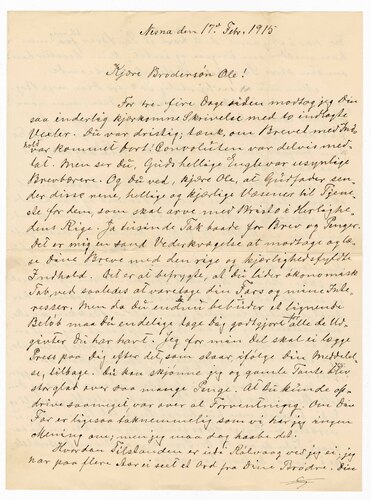 Nesna den 17de Febr. 1915
Kjære Brodersön Ole!
For tre-fire Dage siden modtog jeg Din
saa inderlig kjærkomne Skrivelse med to indlagte
Vexler. Du var dristig, tænk, om Brevet med Ind-
hold var kommet bort! Convoluten var delvis
lat. Men ser du, Guds hellige Engle var usynlige
Brevbærere. Og Du ved, kjære Ole, at Gud fader sen-
der disse rene, hellige og kjærlige Væsener til Tjene-
ste for dem, som skal arve med Kristo i Herlighe-
dens Rige. Ja tusinde Tak baade for Brev og Penger.
Det er mig en sand Vederkvægelse at modtage og læ-
se Dine Breve med den rige og kjærlighedsfyldte
Indhold. Det er at befrygte, at Du lider ökonomisk
Tab, ved saaledes at varetage din Fars og mine Inte-
resser. Men da Du endnu bebuder et lignende
Belöb maa Du endelig tage Dig godtgjort alle de Ud-
givter Du har havt. Jeg for min Del skal ei lægge
Press paa Dig efter det, som staar, ifölge Din Meddelel-
se, tilbage. Du kan skjönne jeg og gamle Tante blev
storglad over saa mange Penge. At Du kunde op-
drive saameget var over al Forventning. Om Din
Far er ligesaa taknemmelig som vi har jeg ingen
Mening om, men jeg maa dog haabe det.
Hvordan Tilstanden er i ved jeg ei, jeg
har paa flere Aar ei seet et Ord fra Dine Brödre. Din